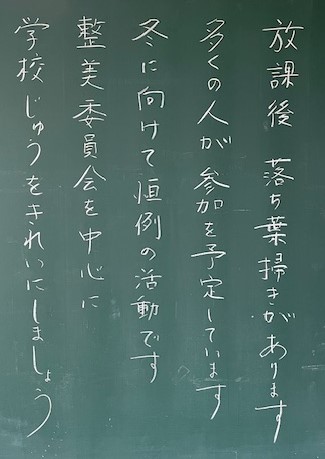 放課後 落ち葉掃きがあります
多くの人が参加を予定しています
冬に向けて恒例の活動です
整美委員会を中心に
学校じゅうをきれいにしましょう